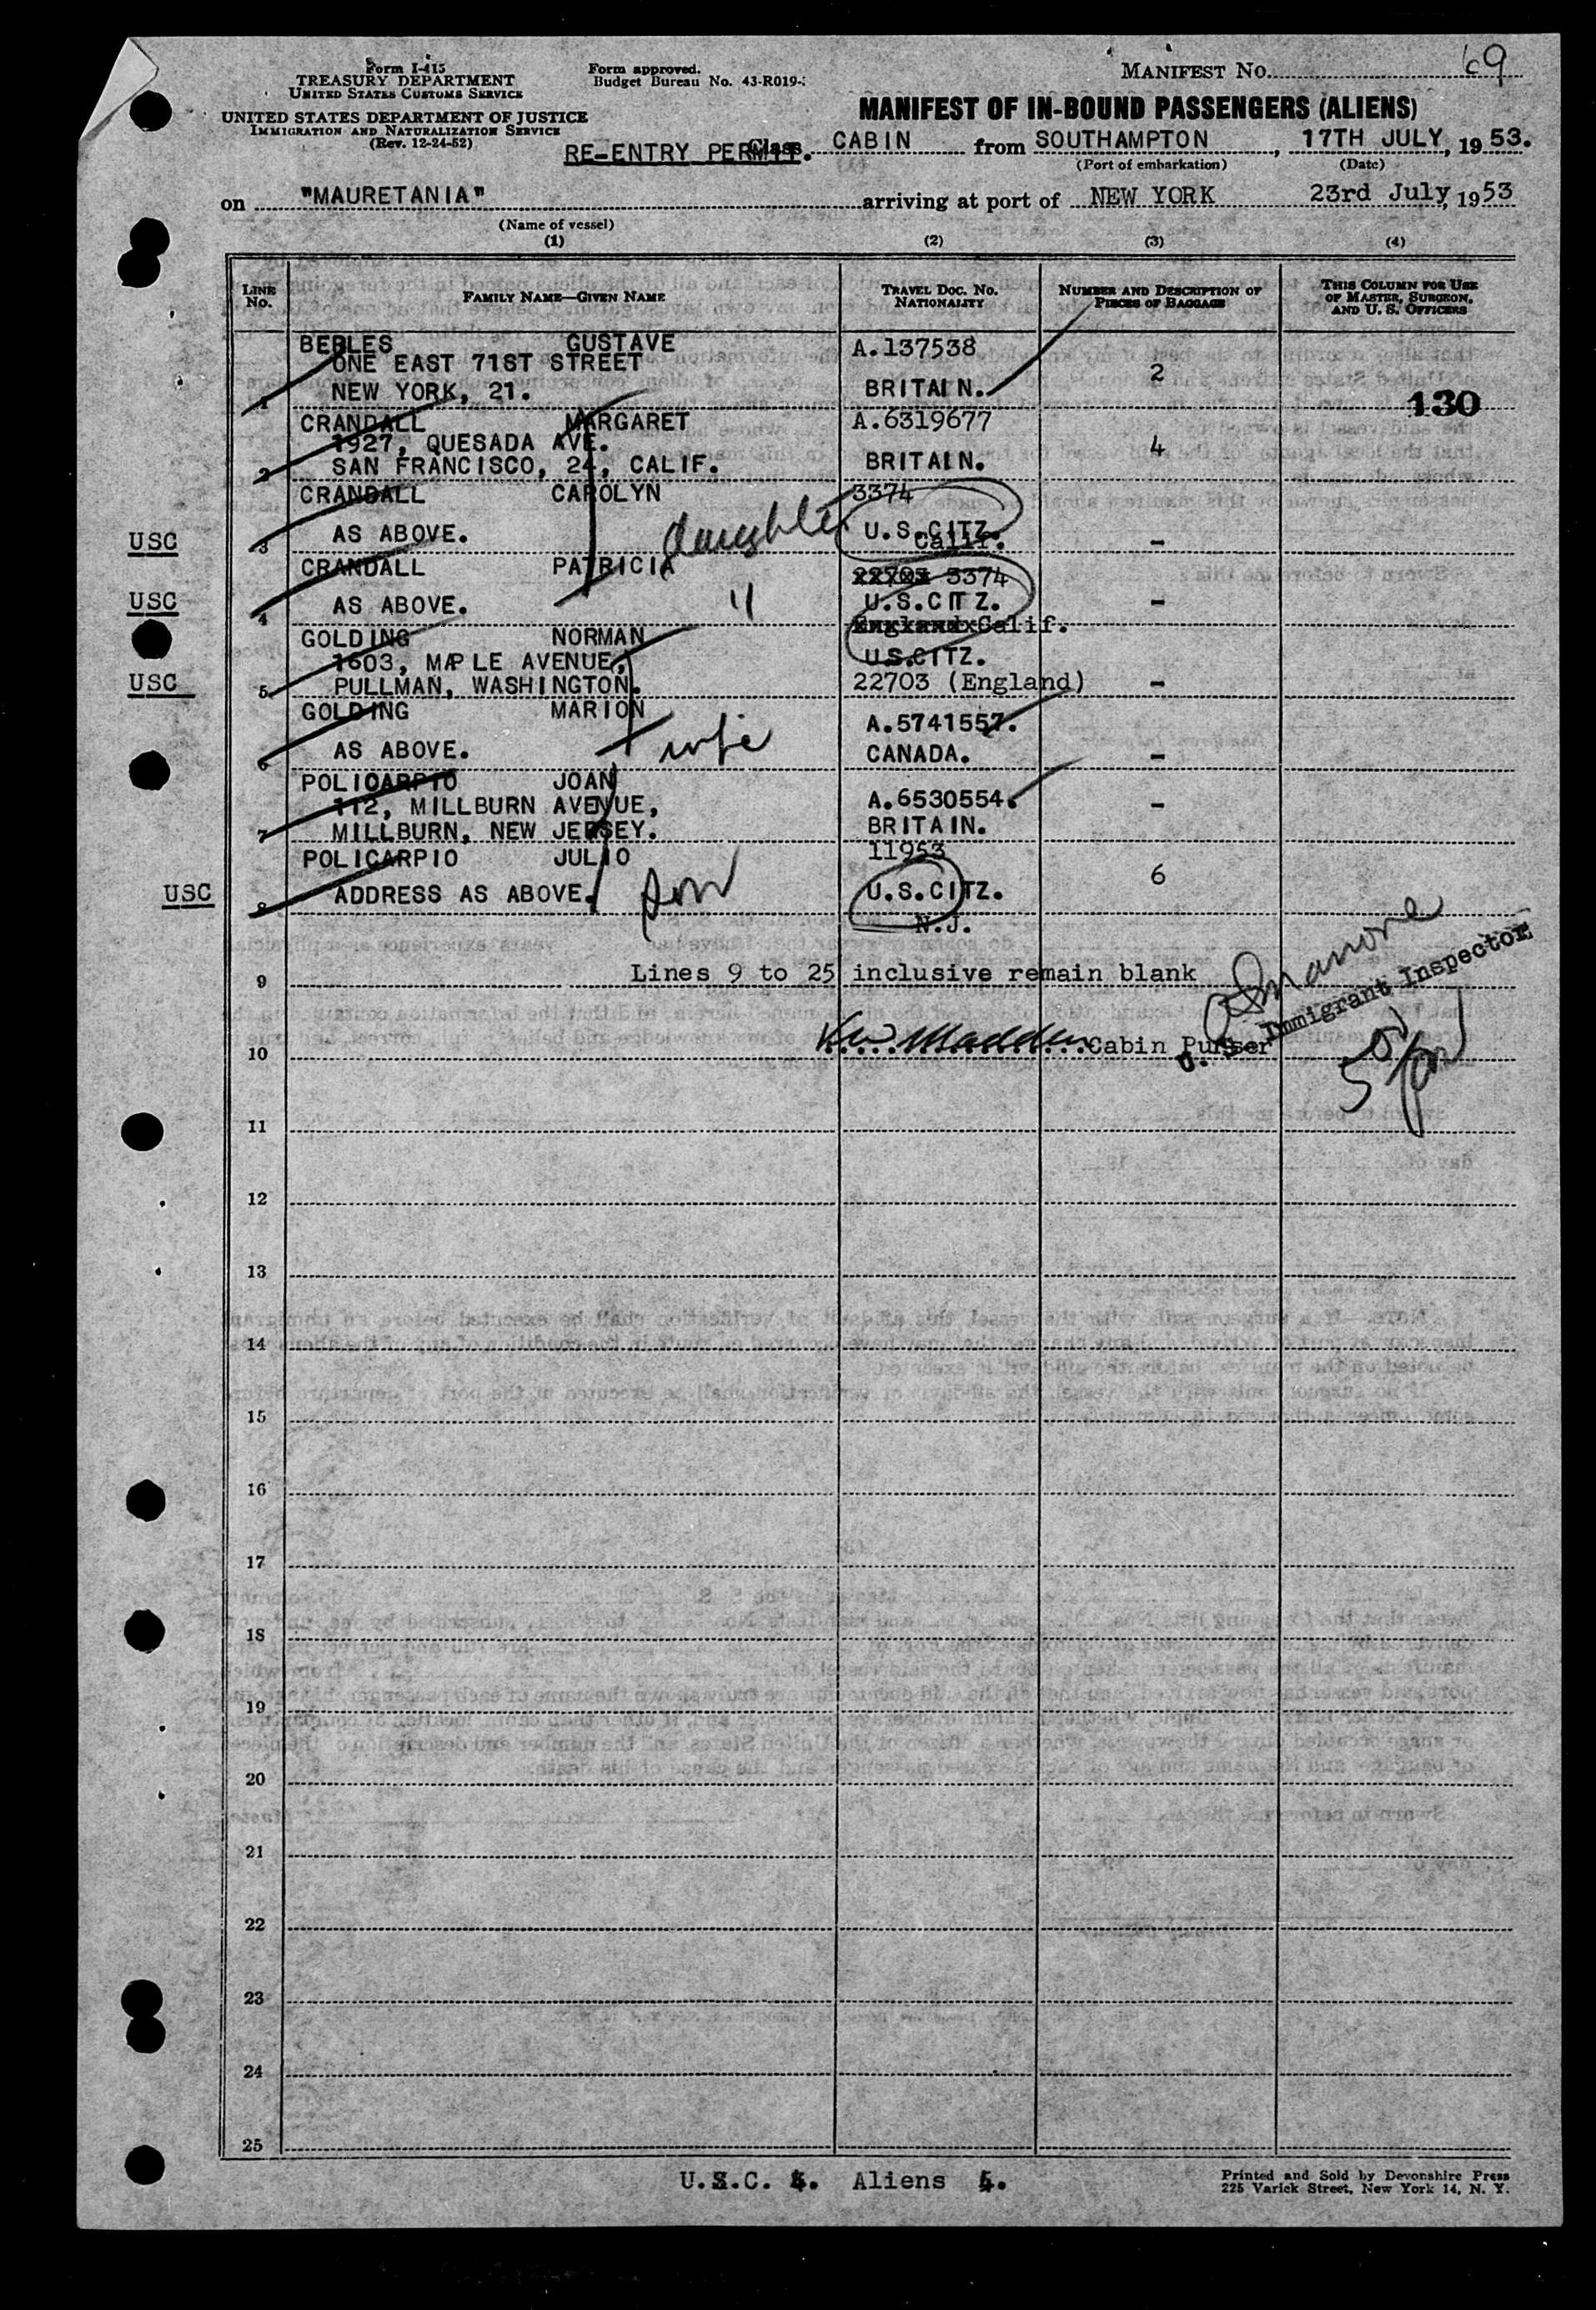 Form I-415
TREASURY DEPARTMENT
UNITED STATES CUSTOMS SERVICE
UNITED STATES DEPARTMENT OF JUSTICE
IMMIGRATION AND NATURALIZATION SERVICE
(Rev. 12-24-52)
Form approved.
Budget Bureau No. 43-R019-
MANIFEST NO. 69
MANIFEST OF IN-BOUND PASSENGERS (ALIENS)
RE-ENTRY PERMIT. Class CABIN from SOUTHAMPTON, 17TH JULY, 1953.
(Port of embarkation) (Date)
on "MAURETANIA" arriving at port of NEW YORK 23rd July, 1953
(Name of vessel)
(1) (2) (3) (4)
LINE NO. FAMILY NAME—GIVEN NAME TRAVEL DOC. NO. NATIONALITY NUMBER AND DESCRIPTION OF PIECES OF BAGGAGE THIS COLUMN FOR USE OF MASTER, SURGEON, AND U. S. OFFICERS
BEBLES GUSTAVE A.137538
ONE EAST 71ST STREET 2
1 NEW YORK, 21. BRITAIN. 130
CRANDALL MARGARET A.6319677
1927, QUESADA AVE. 4
2 SAN FRANCISCO, 24, CALIF. BRITAIN.
CRANDALL CAROLYN 3374
USC 3 AS ABOVE. daughter U.S.CITZ. -
Calif.
CRANDALL PATRICIA 22703 3374
USC 4 AS ABOVE. " U.S.CITZ. -
GOLDING NORMAN England Calif.
1603, MAPLE AVENUE, U.S.CITZ.
USC 5 PULLMAN, WASHINGTON. 22703 (England) -
GOLDING MARION A.5741557.
6 AS ABOVE. wife CANADA. -
POLICARPIO JOAN
112, MILLBURN AVENUE, A.6530554. -
7 MILLBURN, NEW JERSEY. BRITAIN.
POLICARPIO JULIO 11953
USC 8 ADDRESS AS ABOVE. son U.S.CITZ. 6
N.J.
9 Lines 9 to 25 inclusive remain blank
10 Cabin Purser
U. S. Immigrant Inspector
11
12
13
14
15
16
17
18
19
20
21
22
23
24
25
U.S.C. 4. Aliens 4.
Printed and Sold by Devonshire Press
225 Varick Street, New York 14, N. Y.